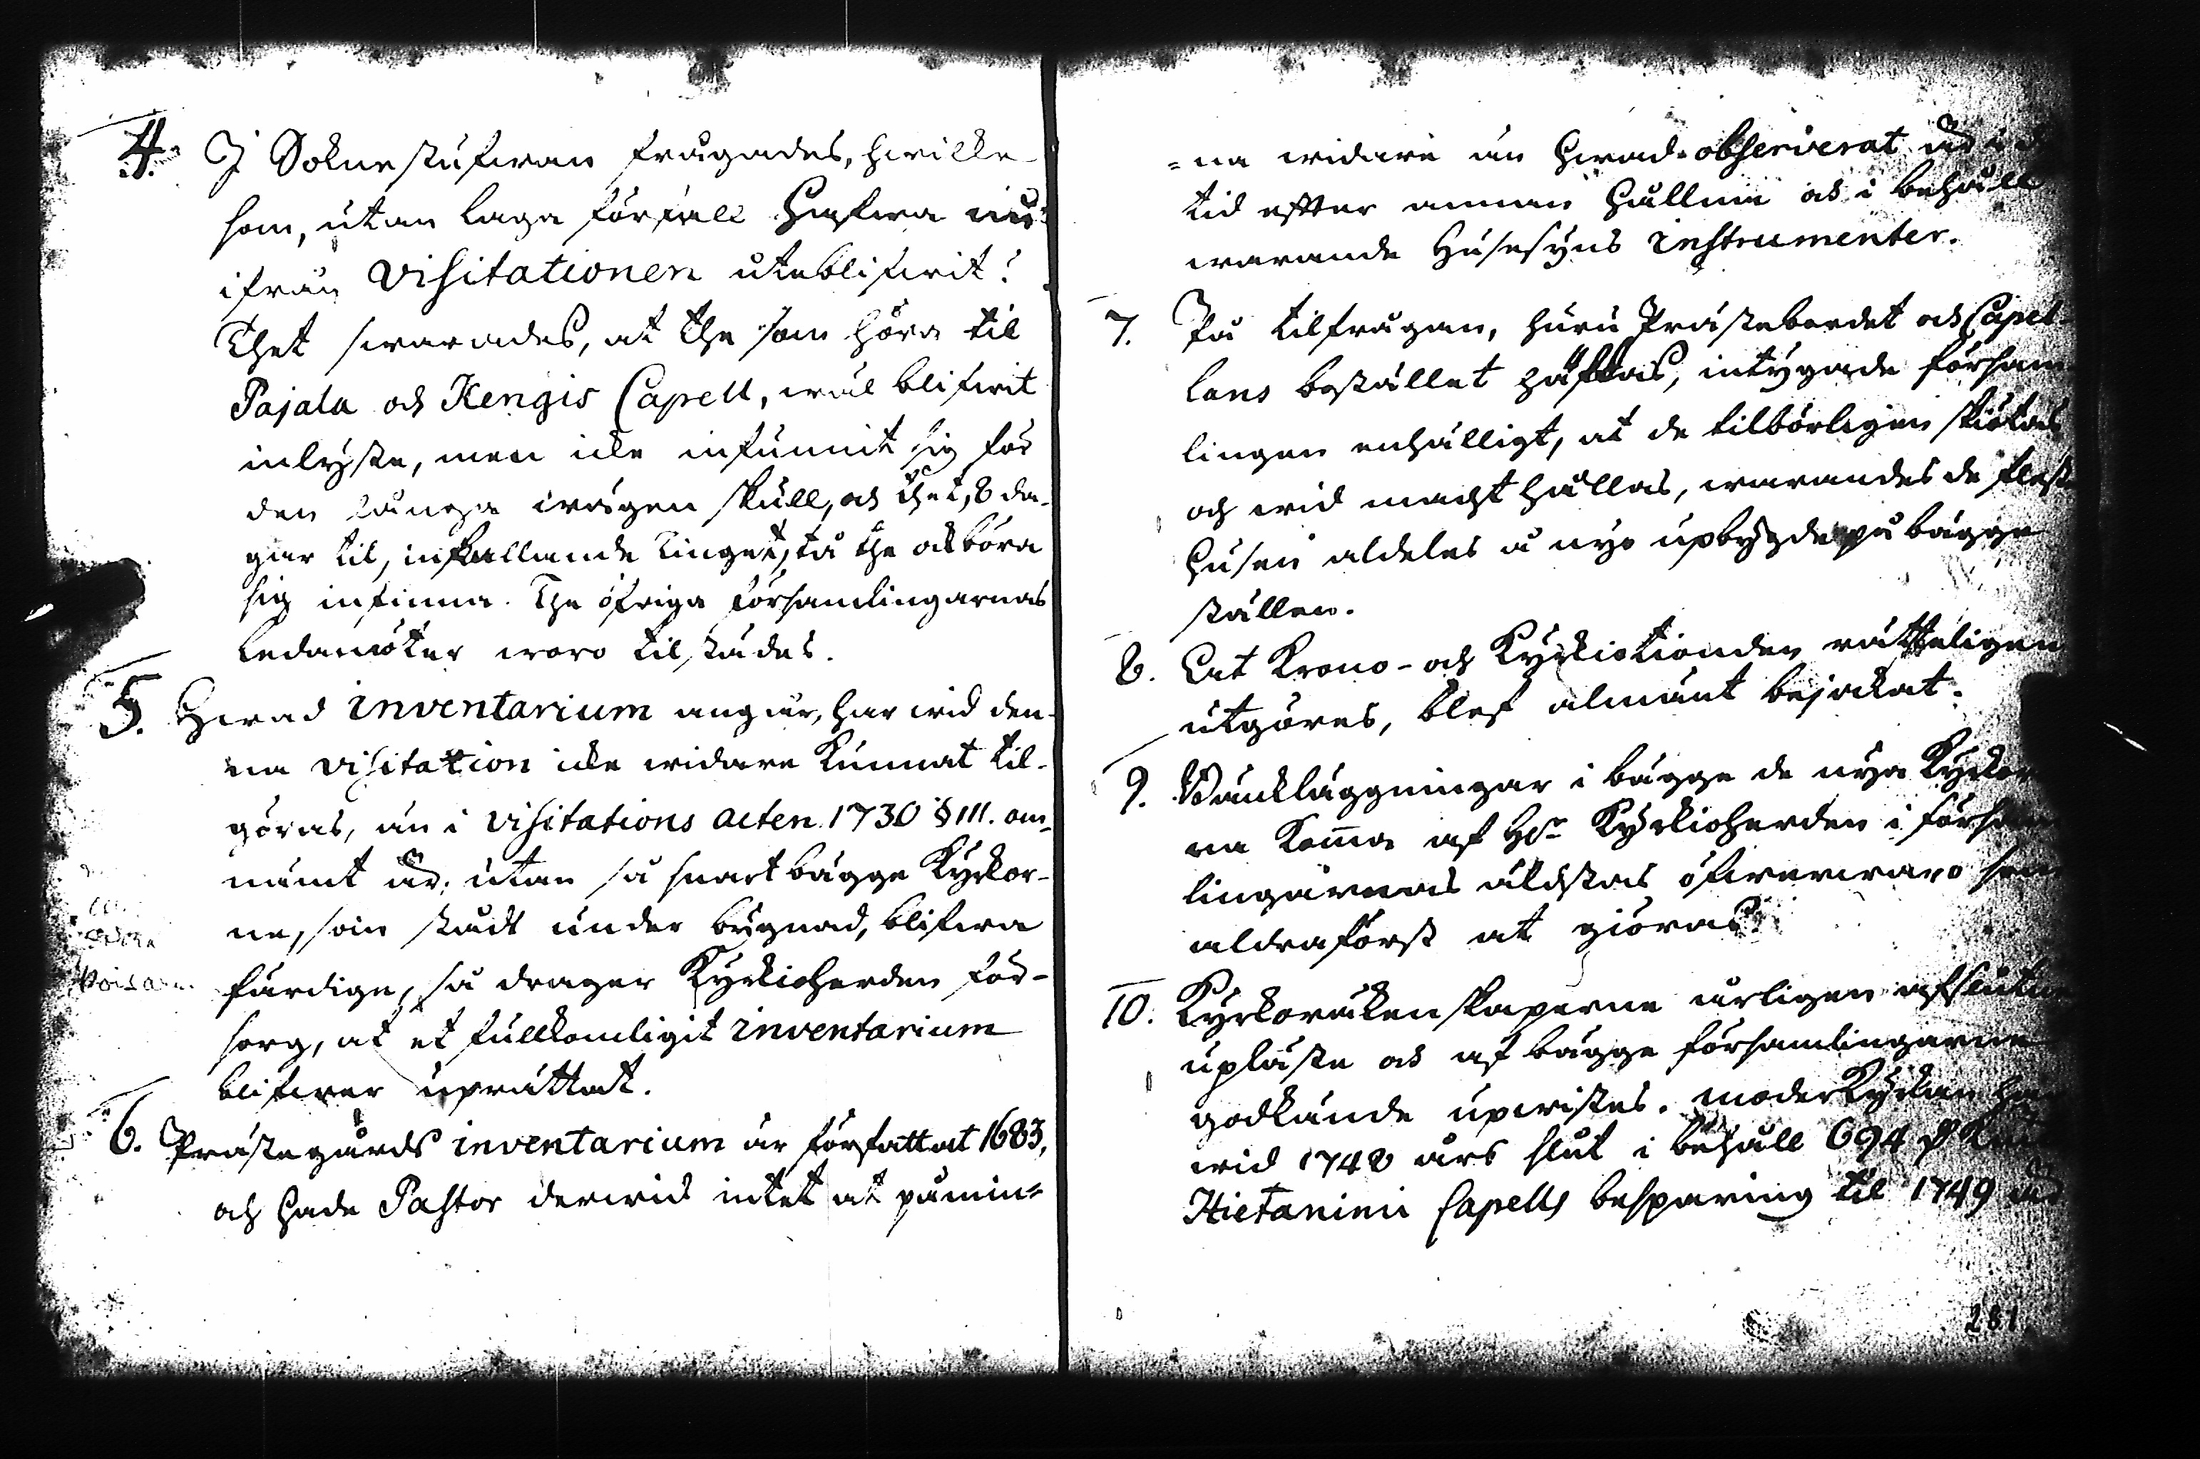 4. I Soknestufwan frågades, hwilke
som, utan laga förfall hafwa nu
ifrån Visitationen uteblifwit?
Thet swarades, at the som höra til
Pajala och Kengis Capell, wäl blifwit
inlyste, men icke infunnit sig för
den långa wägen skull, och thet, 8 da-
gar til, infallande Tinget, tå the ock böra
sig infinna. The öfriga församlingarnas
Ledamöter woro tilstädes.
5. Hwad inventarium angår, har wid den-
na visitation icke widare kunnat til-
göras, än i Visitations acten 1730 § III. om-
nämt är; utan så snart bägge Kyrkor-
ne, som stådt under bygnad, blifwa
färdige, så drager Kyrkioherden för-
sorg, at et fullkomligit inventarium
blifwer uprättat.
6. Prästegårds inventarium är författat 1683,
och hade Pastor derwid intet at påmin-
=na widare än hwad observerat är
tid efter annan hållne och i behåll
warande Husesyns instrumenter.
7. På tilfrågan, huru Prästebordet och Capel-
lans bostället häfdas, intygade försam-
lingen enhälligt, at de tilbörligen skiötas
och wid macht hållas, warandes de flest
husen aldeles å nyo upbygde på bägge
ställen.
8. At Krono- och Kyrkiotionden rätteligen
utgöres, blef almänt bejakat.
9. Bänkläggningar i bägge de nya Kyrkor
na Kom̄a af Hr Kyrkioherden i försam
lingarnas äldstas öfwerwaro
aldraförst at giöras.
10. Kyrkoräkenskaperne årligen afslutne
upläste och af bägge församlingarne
godkände upwistes. moderkyrkan
wid 1748 års slut i behåll 694
Hietaniemi Capells besparing til 1749 är
281